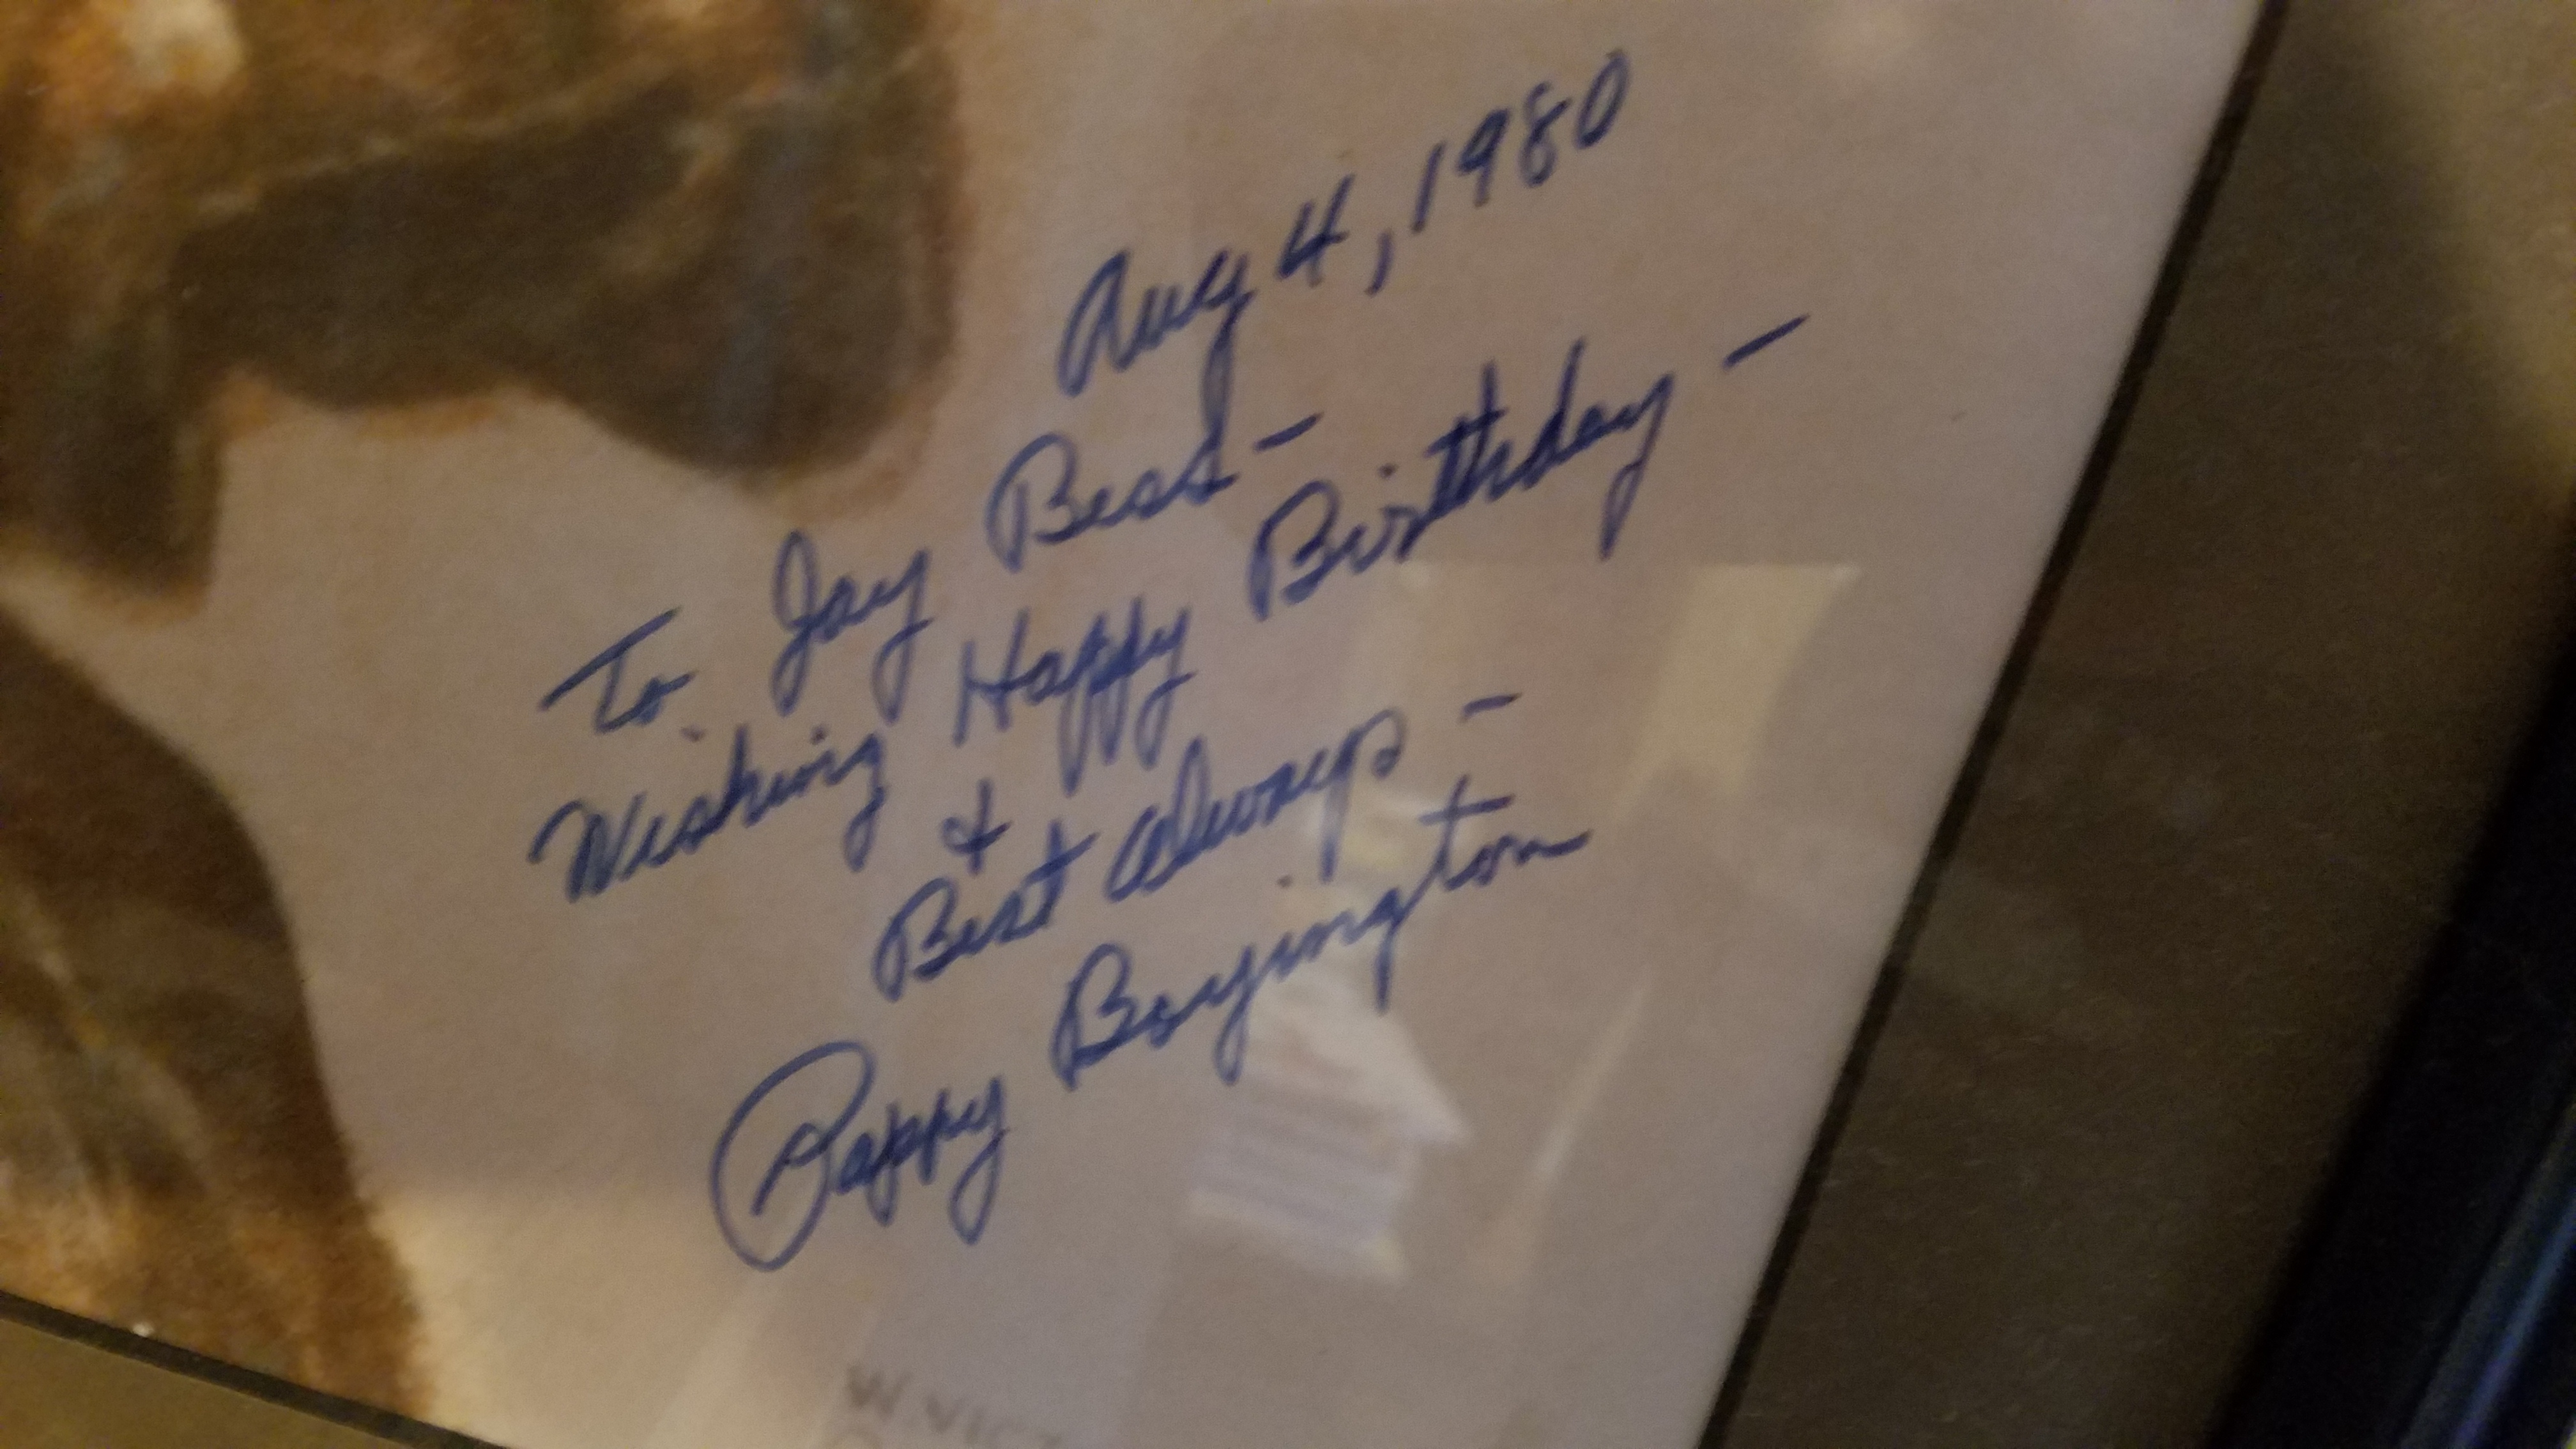 Aug 4, 1980
To Jay Bess-
Wishing Happy Birthday -
&
Best Always -
Pappy Boyington